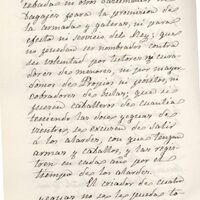 bagajes para la provision de
la armada y galeras, ni para
efecto ni servicio del Rey; que
no puedan ser nombrados contra
su voluntad por tutores ni cura-
dores de menores, ni por mayor-
domos de Propios ni positos, ni
cobradores de bulas; que si
fueren caballeros de cuantia
teniendo las dos yeguas de
vientre, se escusen de salir
á los alardes, con que tengan
armas y caballos, y las regis-
tren en cada año por el
tiempo de los alardes.
El criador de cuatro
yeguas no se le pueda